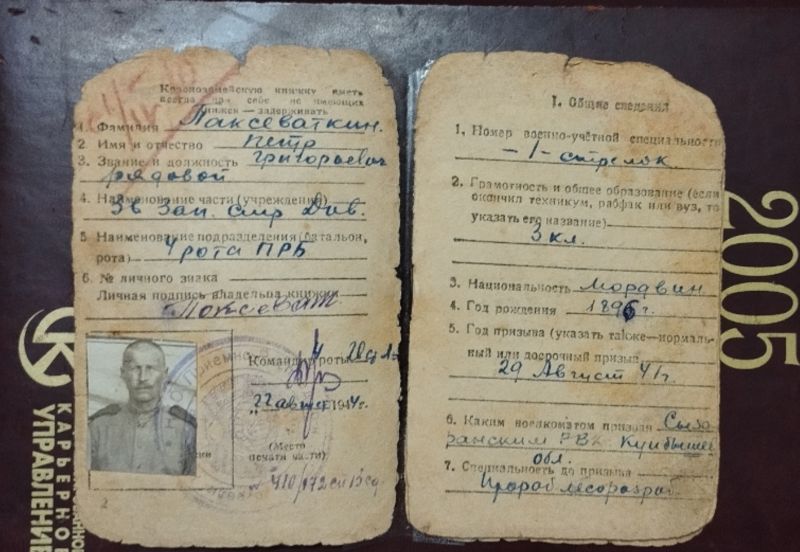 Красноармейскую книжку иметь
всегда при себе не имеющих
книжек — задерживать
1. Фамилия Паксеваткин.
2 Имя и отчество Петр
3. Звание и должность Григорьевич
рядовой
4. Наименование части (учреждения)
36 Зап. стр Див.
5 Наименование подразделения (батальон,
рота) 4 рота ПРБ
6. № личного знака
Личная подпись владельца книжки
Командир роты
22 август 1944г.
(Место
печати части)
2
I. Общие сведения
1. Номер военно-учётной специальности
- 1 - стрелок
2. Грамотность и общее образование (если
окончил техникум, рабфак или вуз, то
указать его название)
3 кл.
3. Национальность Мордвин
4. Год рождения 1896г.
5. Год призыва (указать также—нормаль-
ный или досрочный призыв)
29 Август 41г.
6. Каким военкоматом призван Сыз
ранским РВК Куйбышев
обл.
7. Специальность до призыва
Прораб лесоразраб
2005
КАРЬЕРНО
УПРАВЛЕНИЕ